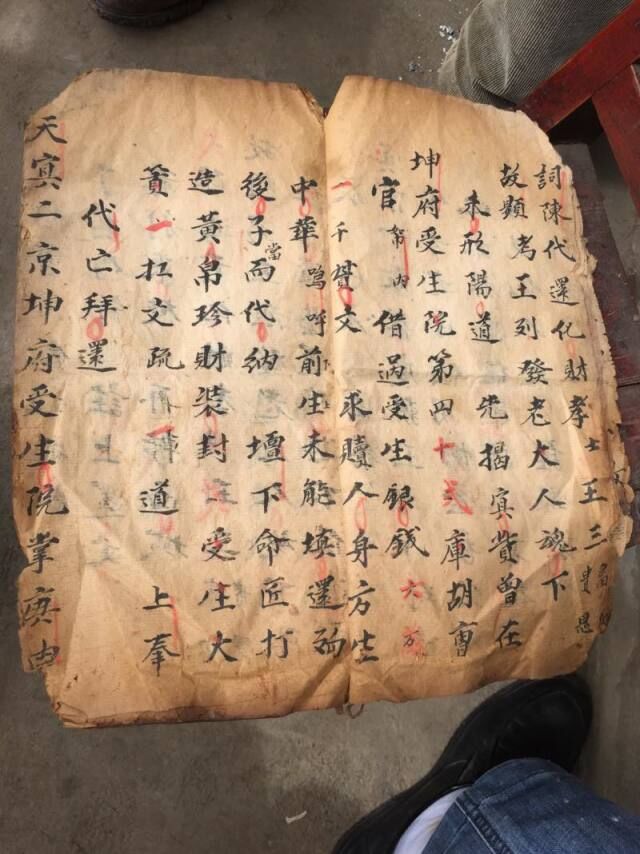 詞陳代還化財孝士王三
貴恩
故顯考王列發老大人魂下
未形陽道先揭寘貲曾在
坤府受生院第四十弍庫胡曺
官名內借過受生銀錢六万
一千貫文求贖人身方生
中華嗚呼前生未能填還殆
後子當而代納壇下命匠打
造黃帛珍財装封受生大
簣一扛文疏一道上奉
代亡拜還
天寘二京坤府受生院掌庚